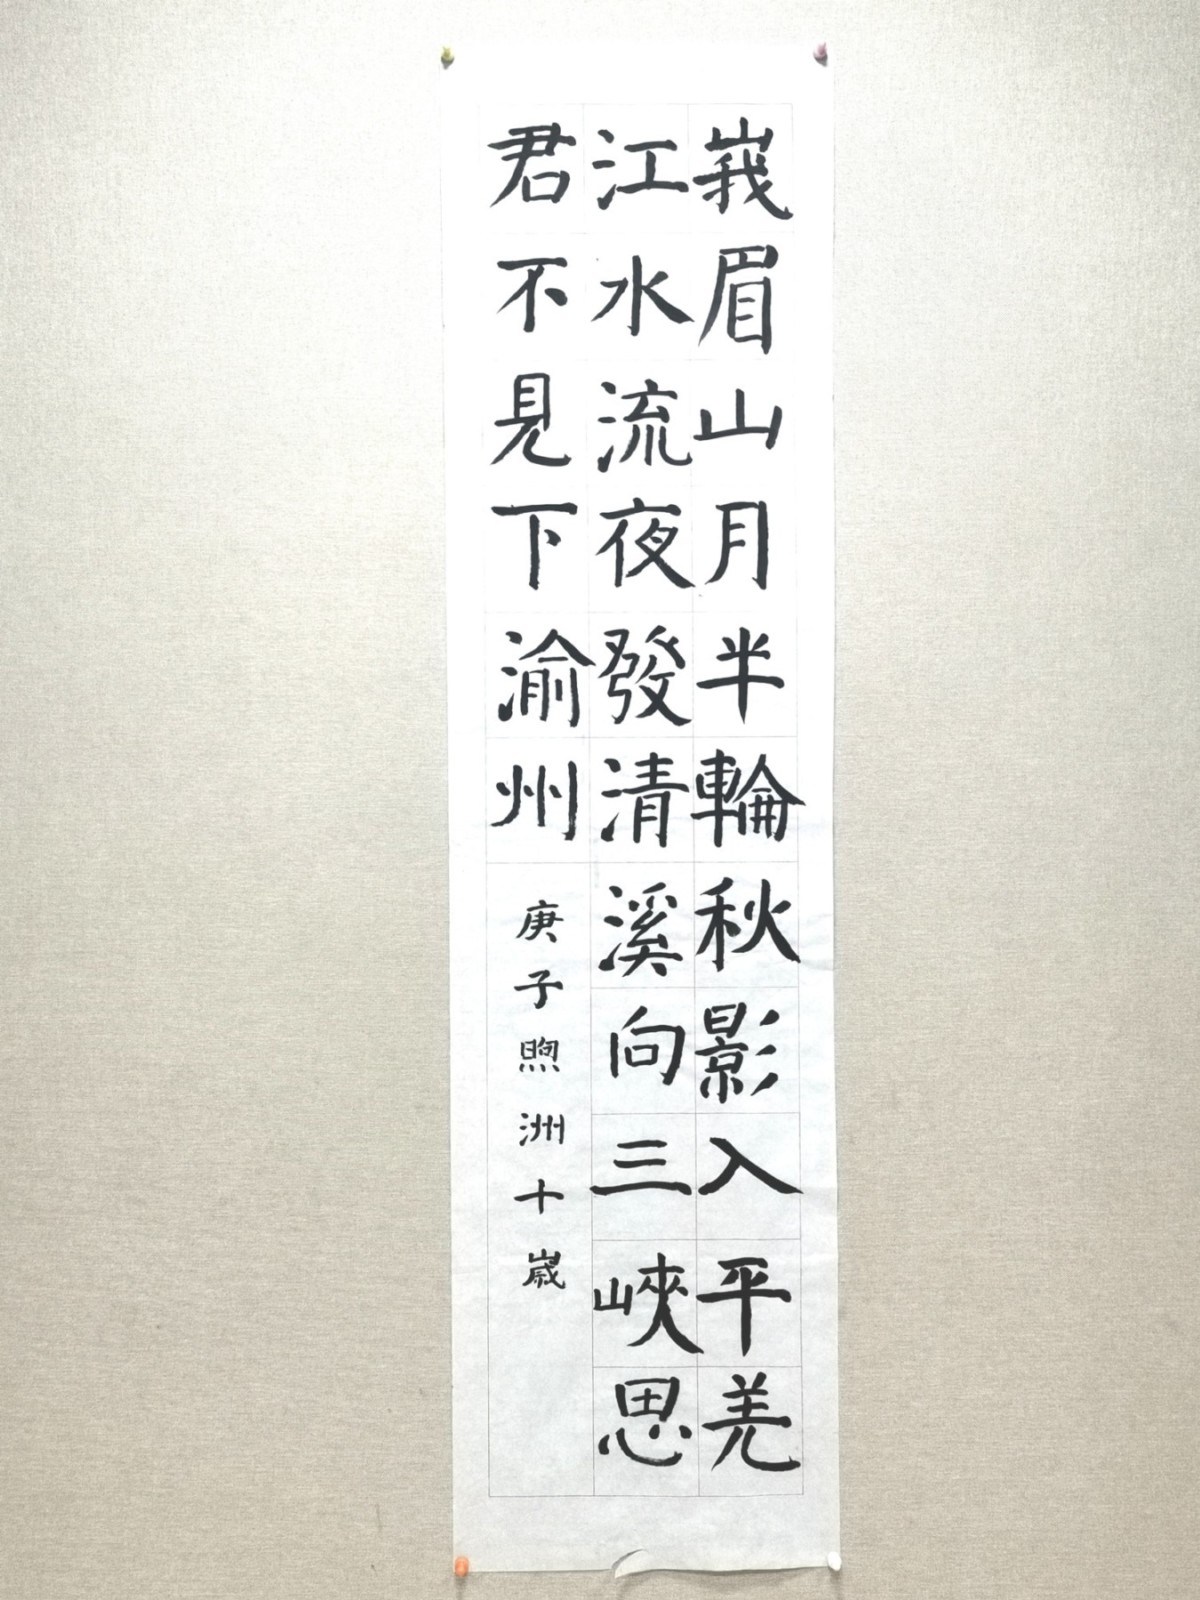 峩眉山月半輪秋影入平羌
江水流夜發清溪向三峽思
君不見下渝州
庚子煦洲十嵗